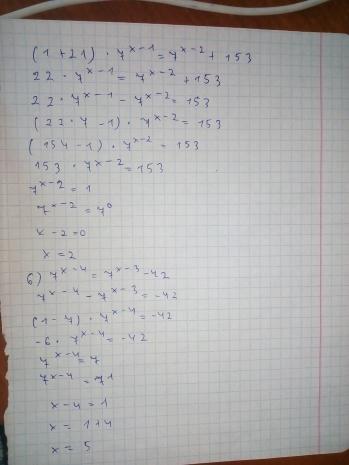 (1+21) · 7^x-1 = 7^x-2 + 153
22 · 7^x-1 = 7^x-2 + 153
22 · 7^x-1 - 7^x-2 = 153
(22 · 7 - 1) · 7^x-2 = 153
(154 - 1) · 7^x-2 = 153
153 · 7^x-2 = 153
7^x-2 = 1
7^x-2 = 7^0
x - 2 = 0
x = 2
б) 7^x-4 = 7^x-3 - 42
7^x-4 - 7^x-3 = -42
(1 - 7) · 7^x-4 = -42
-6 · 7^x-4 = -42
7^x-4 = 7
7^x-4 = 7^1
x - 4 = 1
x = 1+4
x = 5